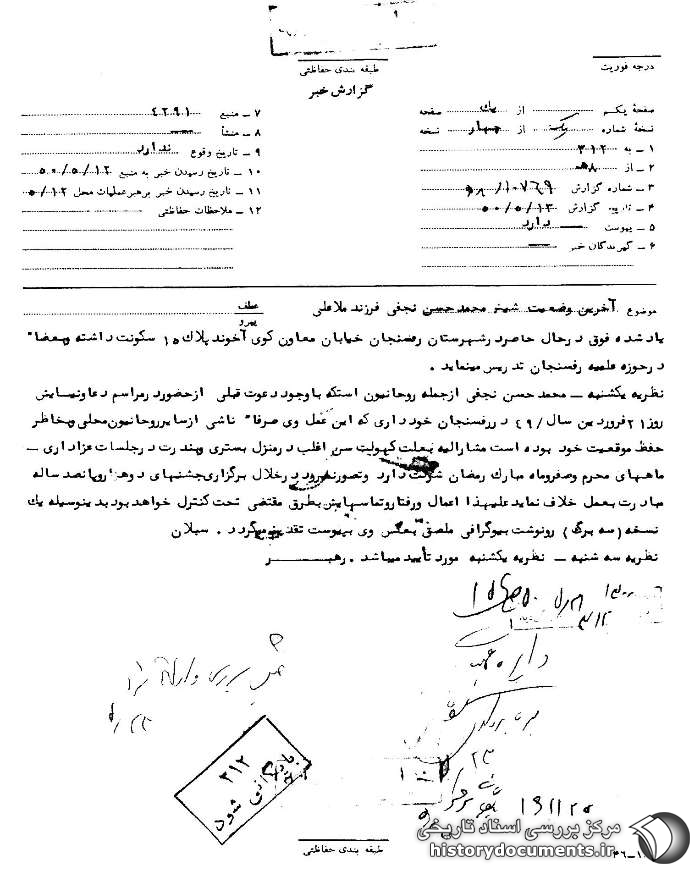 درجه فوریت
طبقه بندی حفاظتی
گزارش خبر
صفحهٔ یکم از یك صفحه
نسخهٔ شماره یک از چهار نسخه
۱ ـ به ۳۱۲
۲ ـ از ۸ هـ
۳ ـ شماره گزارش ۱۰۷۶۹/ ۸هـ
۴ ـ تاریخ گزارش ۵۰/۵/۱۳
۵ ـ پیوست دارد
۶ ـ گیرندگان خبر ــ
۷ ـ منبع ۴۲۹۱
۸ ـ منشأ ــ
۹ ـ تاریخ وقوع ندارد
۱۰ ـ تاریخ رسیدن خبر به منبع ۵۰/۵/۱۲
۱۱ ـ تاریخ رسیدن خبر برهبرعملیات محل ۵/۱۲
۱۲ ـ ملاحظات حفاظتی
موضوع آخرین وضعیت شیخ محمدحسن نجفی فرزند ملاعلی
عطف
پیرو
یاد شده فوق در حال حاضر در شهرستان رفسنجان خیابان معاون کوی آخوند پلاك ۱۵ سکونت داشته و بعضا"
در حوزه علمیه رفسنجان تدریس مینماید .
نظریه یکشنبه ــ محمدحسن نجفی ازجمله روحانیون استکه با وجود دعوت قبلی از حضور در مراسم دعا و نیایش
روز ۲۱ فروردین سال ۴۹/ در رفسنجان خودداری که این عمل وی صرفا" ناشی از سایر روحانیون محلی و بخاطر
حفظ موقعیت خود بوده است مشارالیه بعلت کهولت سن اغلب در منزل بستری و بندرت در جلسات عزاداری ــ
ماههای محرم و صفر و ماه مبارك رمضان شرکت دارد و تصور نمیرود در خلال برگزاری جشنهای دو هزار و پانصد ساله
مبادرت بعمل خلاف نماید علیهذا اعمال و رفتار و تماسهایش بطرق مقتضی تحت کنترل خواهد بود بدینوسیله یك
نسخه (سه برگ) رونوشت بیوگرافی ملصق بعکس وی بپیوست تقدیم میگردد . سبلان
نظریه سه شنبه ــ نظریه یکشنبه مورد تأیید میباشد . رهبر
۳۱۲
بایگانی شود
طبقه بندی حفاظتی
مرکز بررسی اسناد تاریخی
historydocuments.ir